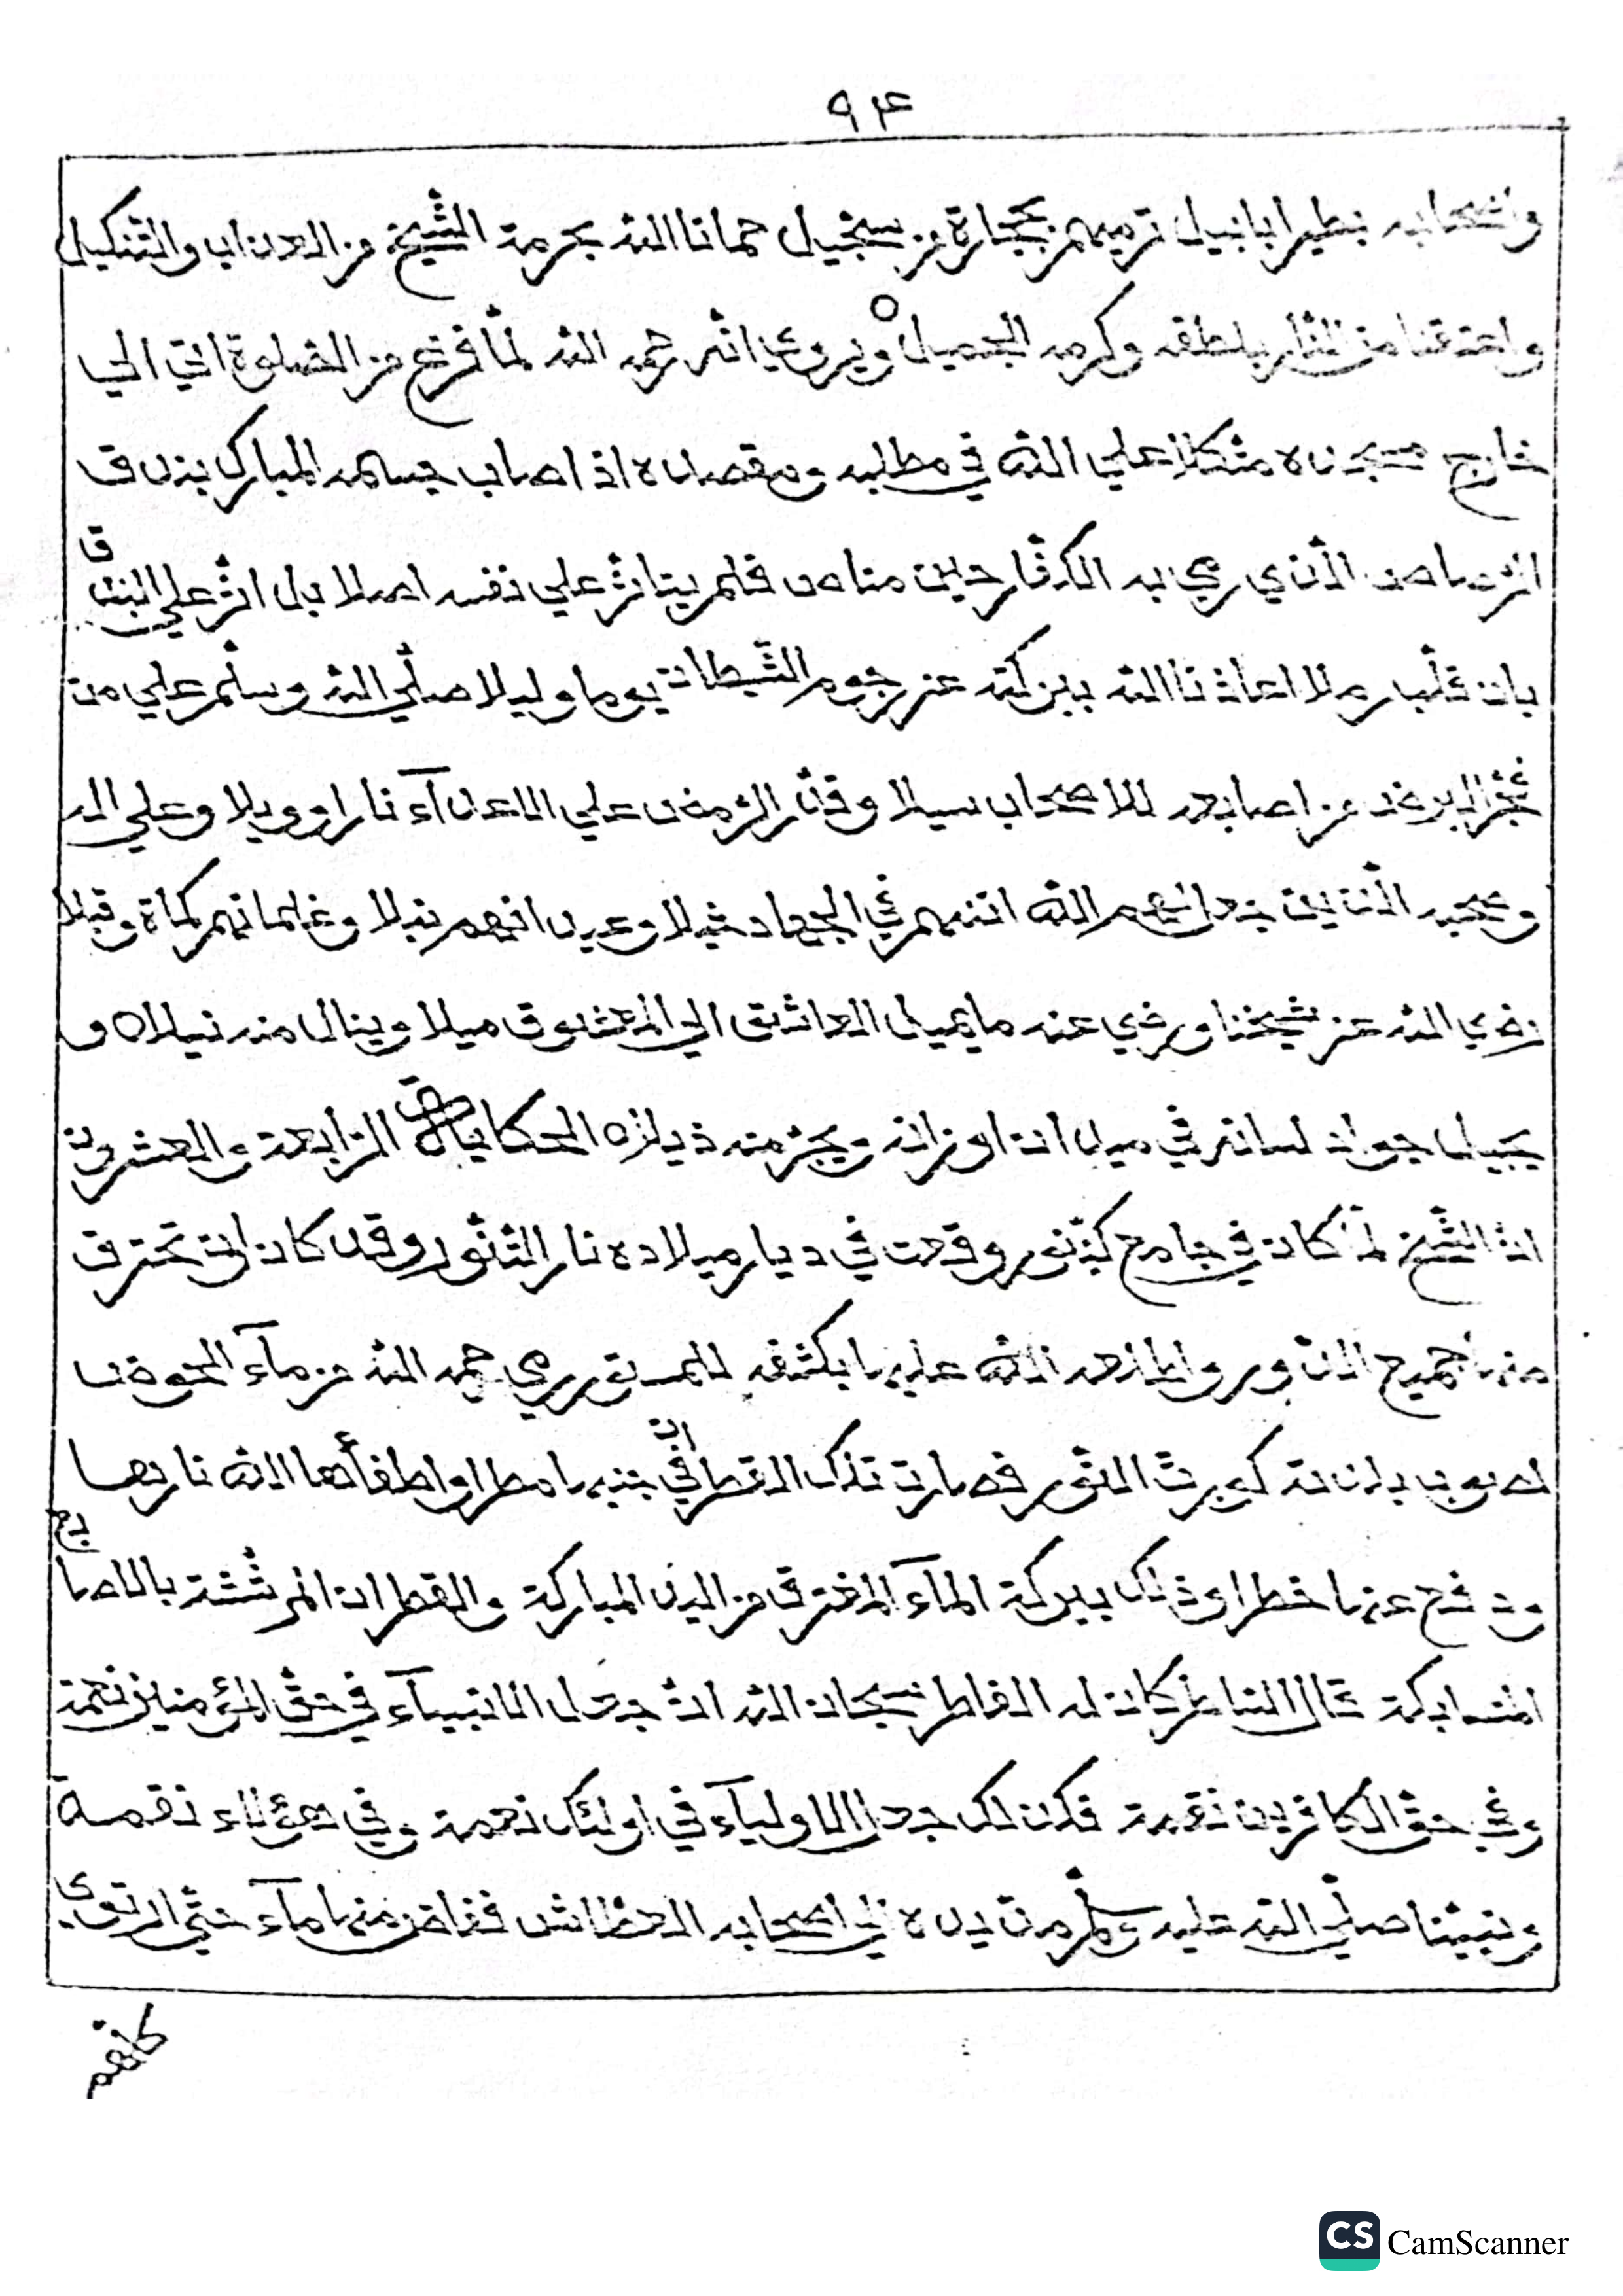 ٩٤
واصحابه بطير ابابيل ترميهم بحجارة من سجيل حمانا الله بحرمة الشيخ من العذاب والتنكيل
واعتقنا من النار بلطفه وكرمه الجميل ٥ ويروي انه رحمه الله لما فرغ من الصلوة اتي الي
خارج مسجده متكلا علي الله في مطلبه ومقصده اذ اصاب جسمه المبارك بندق
الرصاص الذي رمي به الكفار حين مناص فلم يتاثر علي نفسه اصلا بل اثر علي البندق
بان قلبه رملا اعاذنا الله ببركته عن رجوم الشيطان يوما وليلا صلي الله وسلم علي من
فجر البرض من اصابعه للاصحاب سيلا وقدر الرمض علي الاعدآء نارا وويلا وعلي اله
وصحبه الذين جعلهم الله اتنهم في الجهاد خيلا وعيدانهم نبلا وغلمانهم كماة وقيلا
رضي الله عن شيخنا ورضي عنه ما يميل العاشق الي المعشوق ميلا وينال منه نيلا ٥ و
يجيل جواد لسانه في ميدان اوزانه ويجر منه ذيلا ٥ الحكاية الرابعة والعشرون
ان الشيخ لما كان في جامع كنور وقعت في ديار ميلاده نار التنور وقد كان ان تحترق
منها جميع الدور واطلعه الله عليها بكشفه للمستور رمي رحمه الله من مآء الحوض
لصوب بلدته كويرث النور فصارت تلك القطرات في جنبها مطرا واطفأها الله نارها
ودفع عنها خطرا وذلك ببركة المآء المغترف من اليد المباركة والقطرات المرششة بالاصابع
المتسابكة قال الناظر كان له الفاطر سبحان الله ان جعل الانبيآء في حق المؤمنين نعمة
وفي حق الكافرين نقمة فكذلك جعل الاوليآء في اولئك نعمة وفي هؤلاء نقمة
ونبينا صلي الله عليه وسلم مد يده الي اصحابه العطاش ففاض منها مآء حتي ارتوي
كلهم
CamScanner